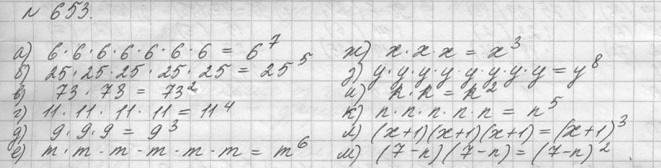 № 653.
а) 6 · 6 · 6 · 6 · 6 · 6 · 6 = 6⁷
б) 25 · 25 · 25 · 25 · 25 = 25⁵
в) 73 · 73 = 73²
г) 11 · 11 · 11 · 11 = 11⁴
д) 9 · 9 · 9 = 9³
е) m · m · m · m · m · m = m⁶
ж) x · x · x = x³
з) y · y · y · y · y · y · y · y = y⁸
и) n · n = n²
к) n · n · n · n · n = n⁵
л) (x+1)(x+1)(x+1) = (x+1)³
м) (7-n)(7-n) = (7-n)²